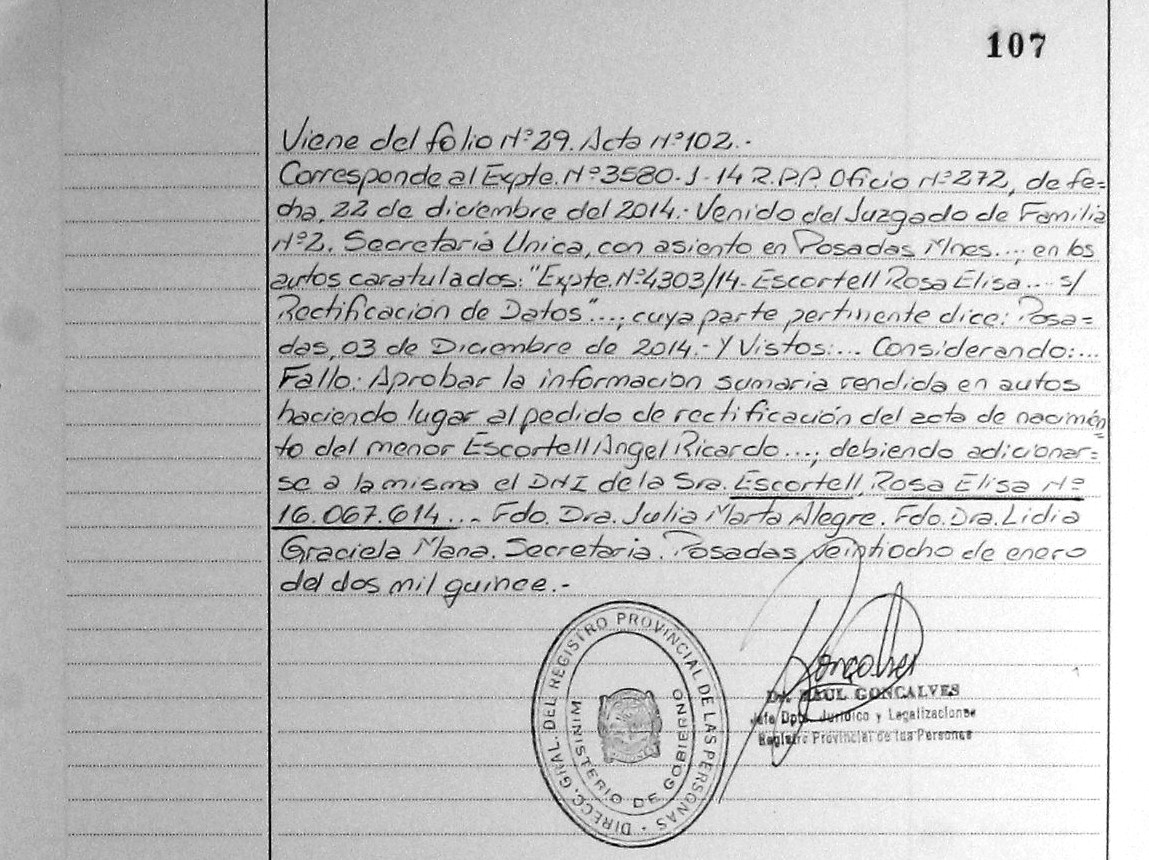 107
Viene del folio Nº29. Acta Nº102.-
Corresponde al Expte. Nº3580-J-14 R.P.P. Oficio Nº272, de fe=
cha, 22 de diciembre del 2014.- Venido del Juzgado de Familia
Nº2. Secretaría Unica, con asiento en Posadas Mnes...; en los
autos caratulados: "Expte. Nº4303/14- Escortell Rosa Elisa... s/
Rectificacion de Datos"...; cuya parte pertinente dice: Posa=
das, 03 de Diciembre de 2014.- Y Vistos:... Considerando:...
Fallo: Aprobar la informacion sumaria rendida en autos
haciendo lugar al pedido de rectificación del acta de nacimien=
to del menor Escortell Angel Ricardo...; debiendo adicionar=
se a la misma el DNI de la Sra. Escortell, Rosa Elisa Nº
16.067.614... Fdo. Dra. Julia Marta Alegre. Fdo. Dra. Lidia
Graciela Mana. Secretaria. Posadas, veintiocho de enero
del dos mil quince.-
DIRECC. GRAL. DEL REGISTRO PROVINCIAL DE LAS PERSONAS
MINISTERIO DE GOBIERNO
Dr. RAUL GONCALVES
Jefe Dpto. Jurídico y Legalizaciones
Registro Provincial de las Personas